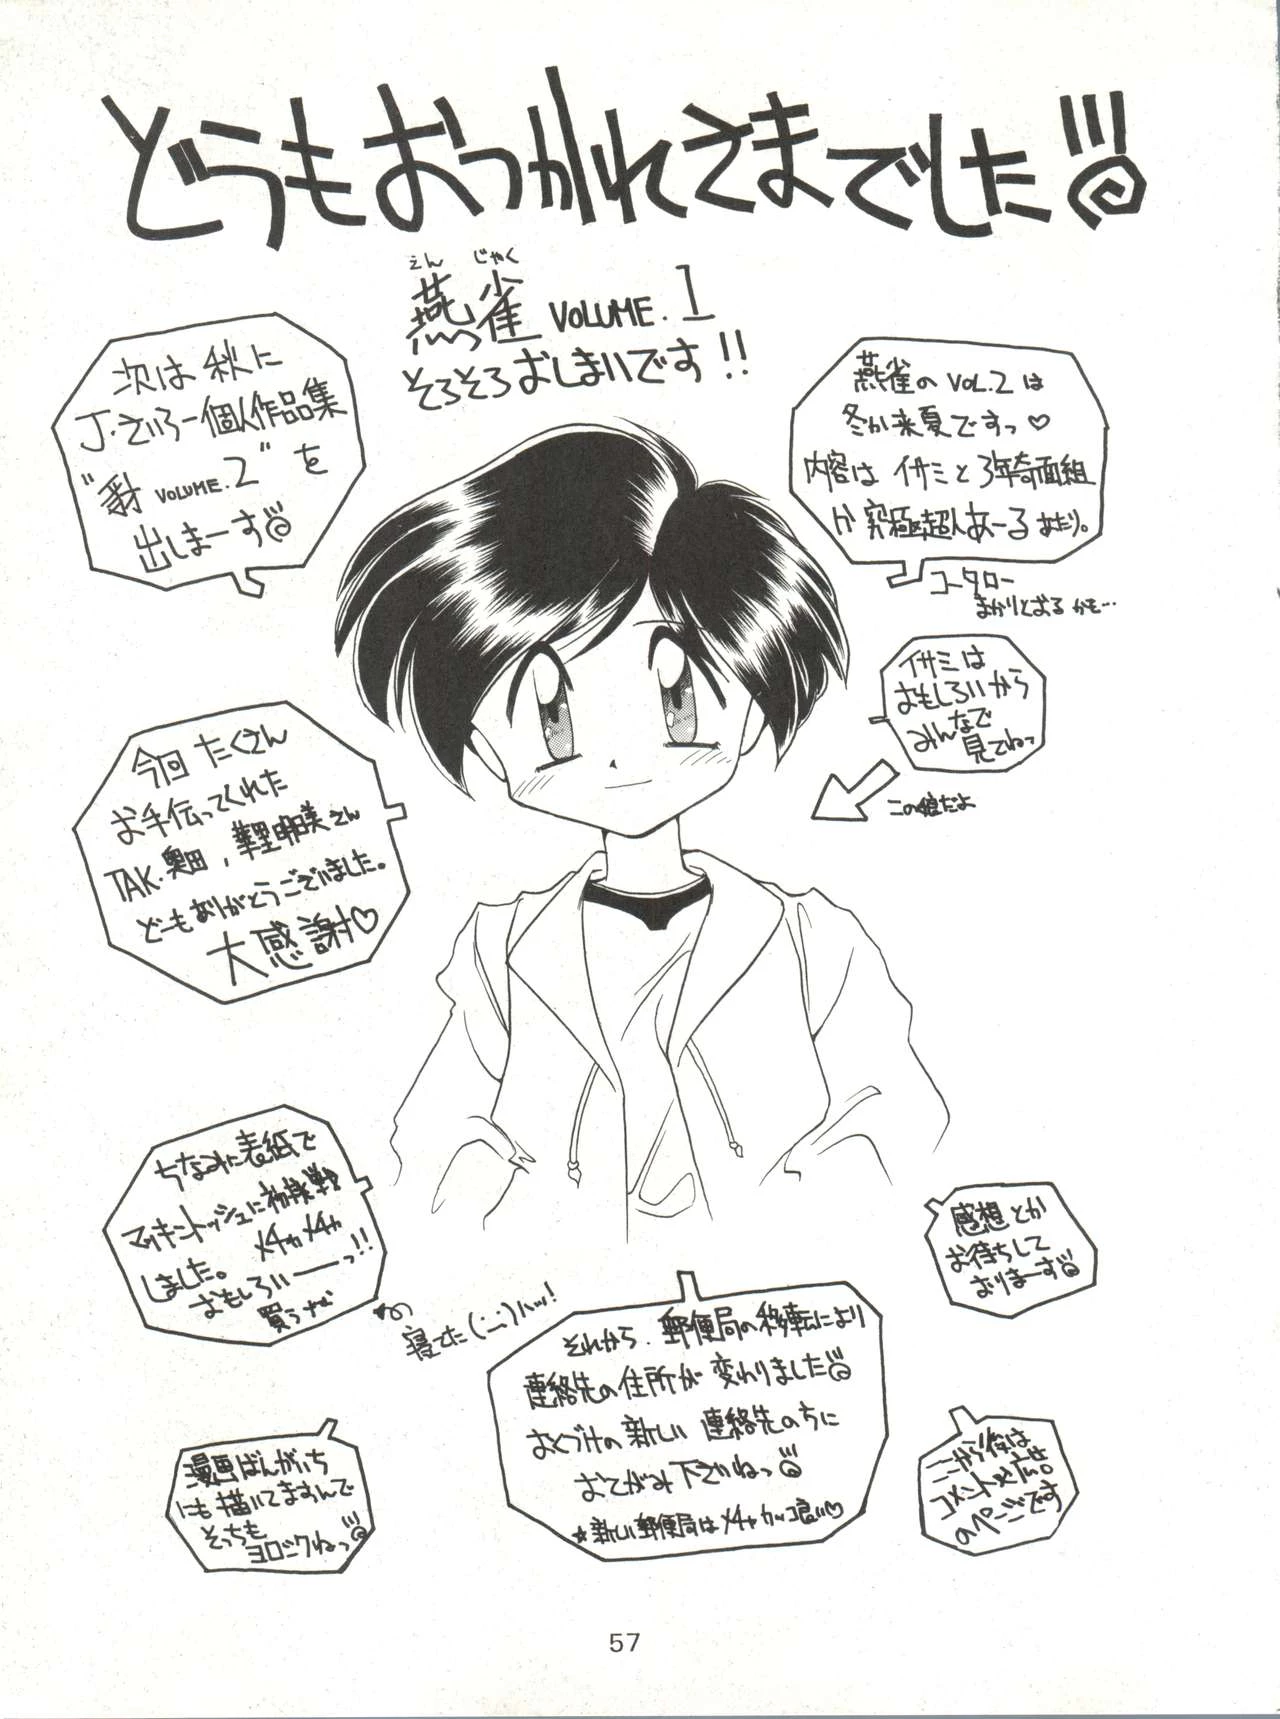 どうもおつかれさまでした!!!
えん じゃく
燕雀 VOLUME.1
そろそろおしまいです!!
次は秋に
J・さいろー個人作品集
VOLUME.2"を
出しまーす
燕雀のVOL.2は
冬か来夏ですっ♡
内容はイサミと3年奇面組
か究極超人あ〜るあたり。
コータロー
まかりとおるかも…
イサミは
おもしろいから
みんなで
見てねっ
この娘だよ
今回たくさん
お手伝ってくれた
TAK.奥田,華里明美さん
どーもありがとうございました。
大感謝♡
ちなみに表紙で
マッキントッシュに初挑戦
しました。メチャメチャ
おもしろいーーっ!!
買うぞ
寝てた(;;)ハッ!
感想とか
お待ちして
おりまーす
それから、郵便局の移転により
連絡先の住所が変わりました
おくづけの新しい連絡先のちに
おてがみ下さいねっ!!
☆新しい郵便局はメチャカッコ良い♡
漫画ばんがいち
にも描いてますんで
そっちも
ヨロシクねっ!!
ここから後は
コメント&広告
のページです
57